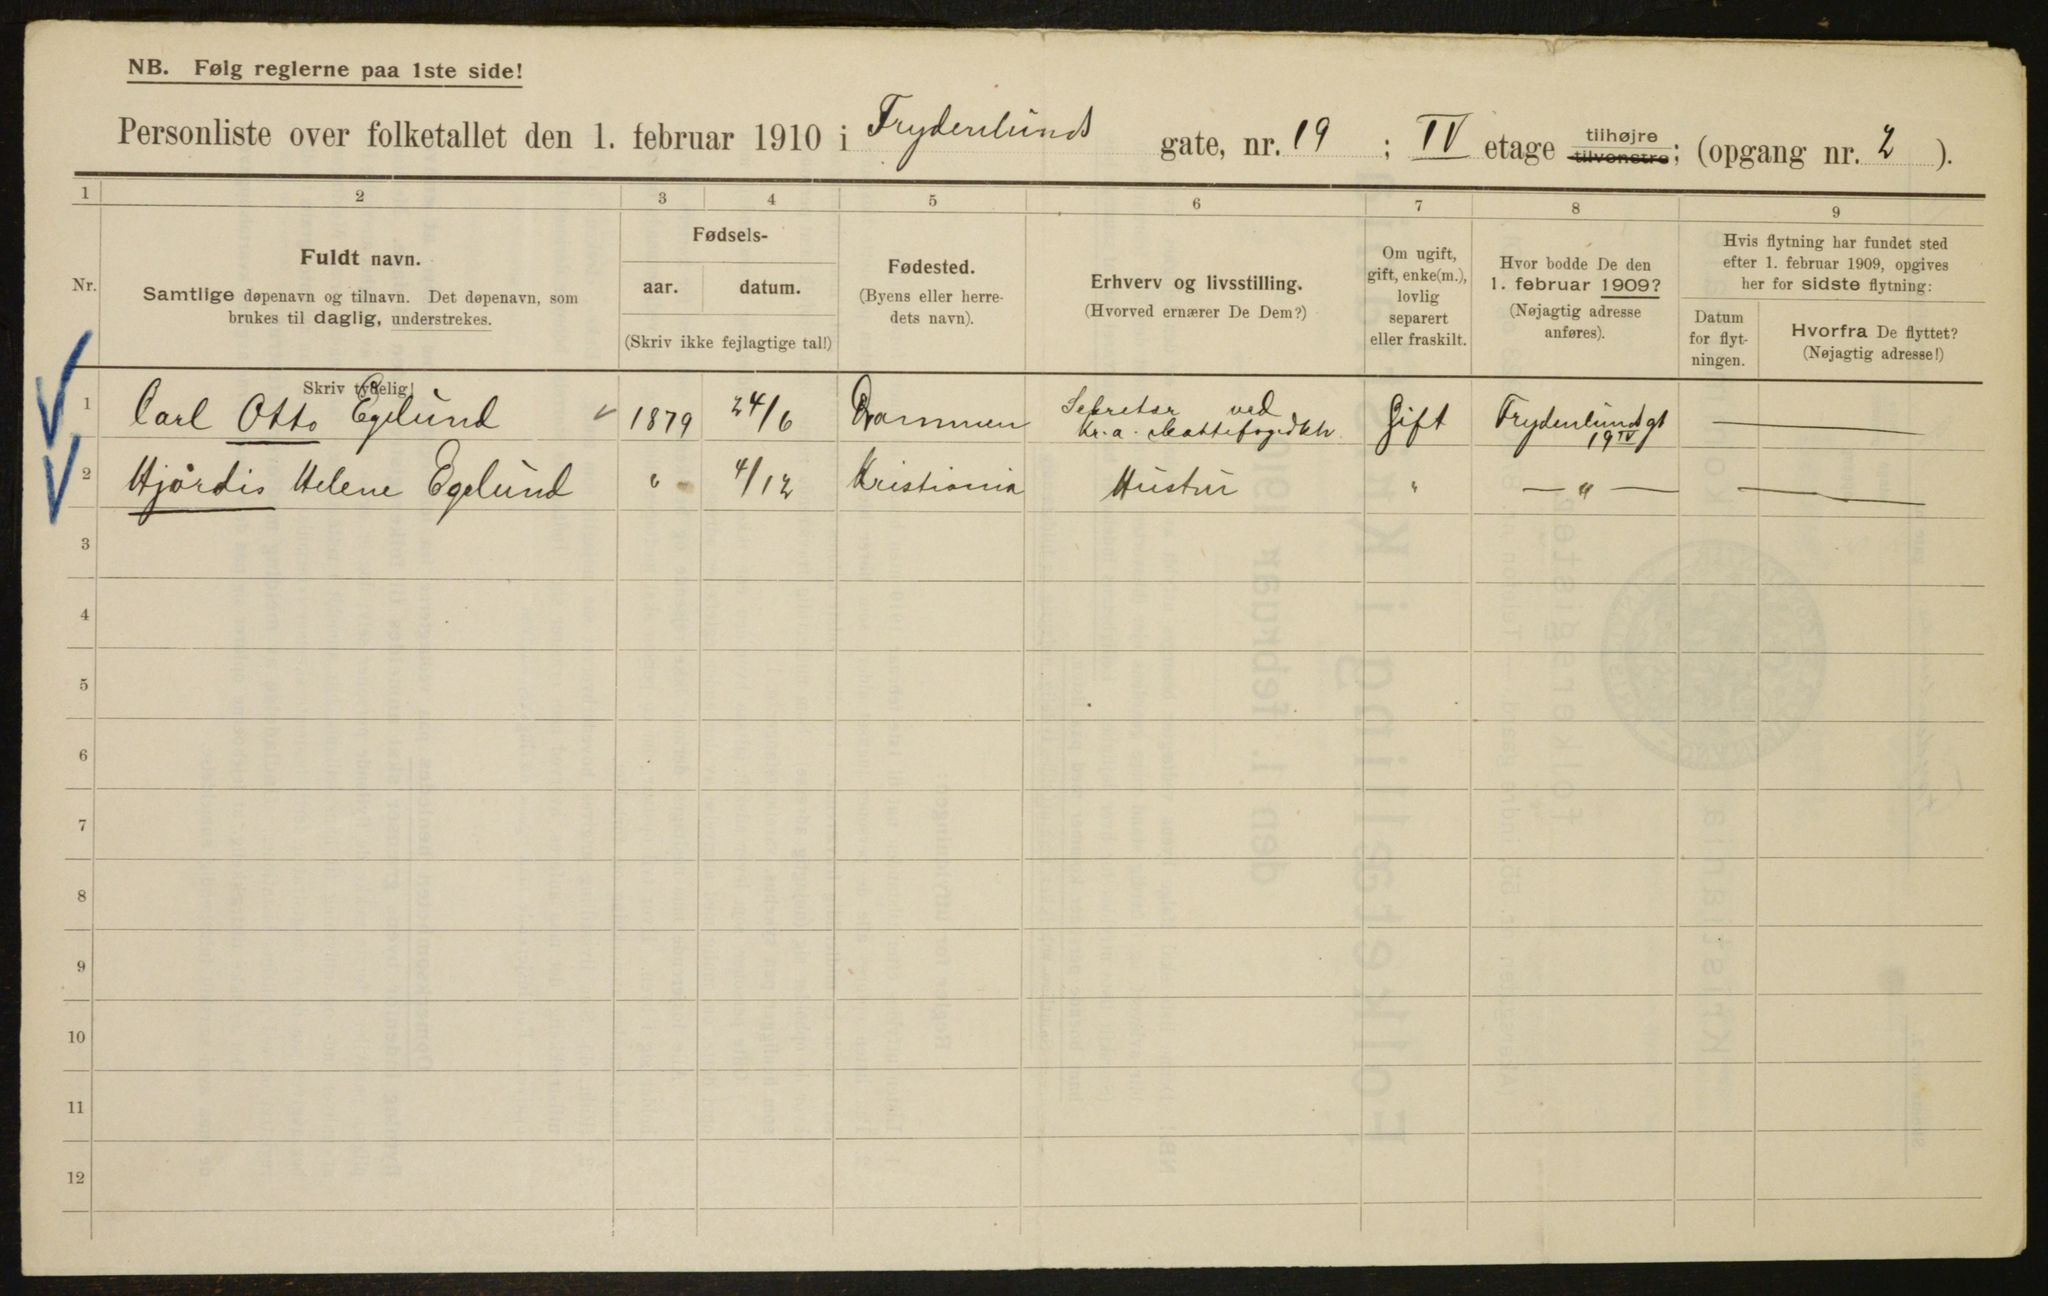 NB. Følg reglerne paa 1ste side!
Personliste over folketallet den 1. februar 1910 i Frydenlunds gate, nr. 19 ; IV etage tilhøjre tilvenstre; (opgang nr. 2 ).
1 2 3 4 5 6 7 8 9
Nr.
Fuldt navn.
Samtlige døpenavn og tilnavn. Det døpenavn, som
brukes til daglig, understrekes.
Skriv tydelig!
Fødsels-
aar. datum.
(Skriv ikke fejlagtige tal!)
Fødested.
(Byens eller herre-
dets navn).
Erhverv og livsstilling.
(Hvorved ernærer De Dem?)
Om ugift,
gift, enke(m.),
lovlig
separert
eller fraskilt.
Hvor bodde De den
1. februar 1909?
(Nøjagtig adresse
anføres).
Hvis flytning har fundet sted
efter 1. februar 1909, opgives
her for sidste flytning:
Datum
for flyt-
ningen.
Hvorfra De flyttet?
(Nøjagtig adresse!)
1 Carl Otto Egelund 1879 24/6 Drammen Sekretær ved Kr.a. Gift Frydenlundsgt 19 IV —
2 Hjørdis Helene Egelund " 4/12 Kristiania Hustru " — " — —
3
4
5
6
7
8
9
10
11
12